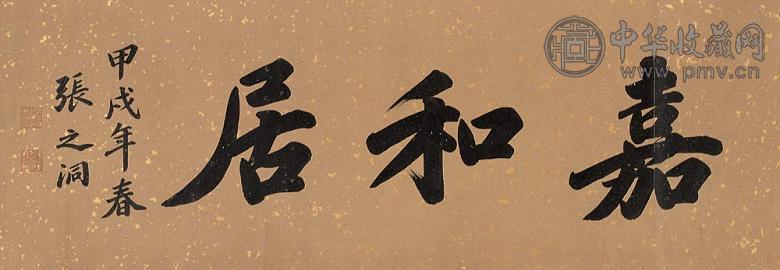 嘉和居
甲戌年春
張之洞
中华收藏网
www.pmv.cn